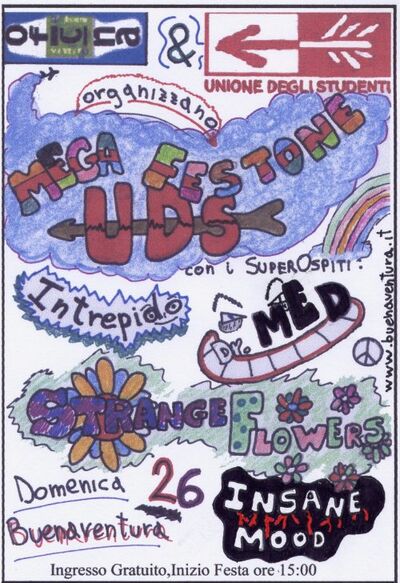 oficina
&
UNIONE DEGLI STUDENTI
organizzano
MEGA FESTONE
UDS
con i SUPEROSPITI:
Intrepido
Dr. MED
www.buenaventura.it
STRANGE FLOWERS
Domenica 26
Buenaventura
INSANE
MOOD
Ingresso Gratuito,Inizio Festa ore 15:00